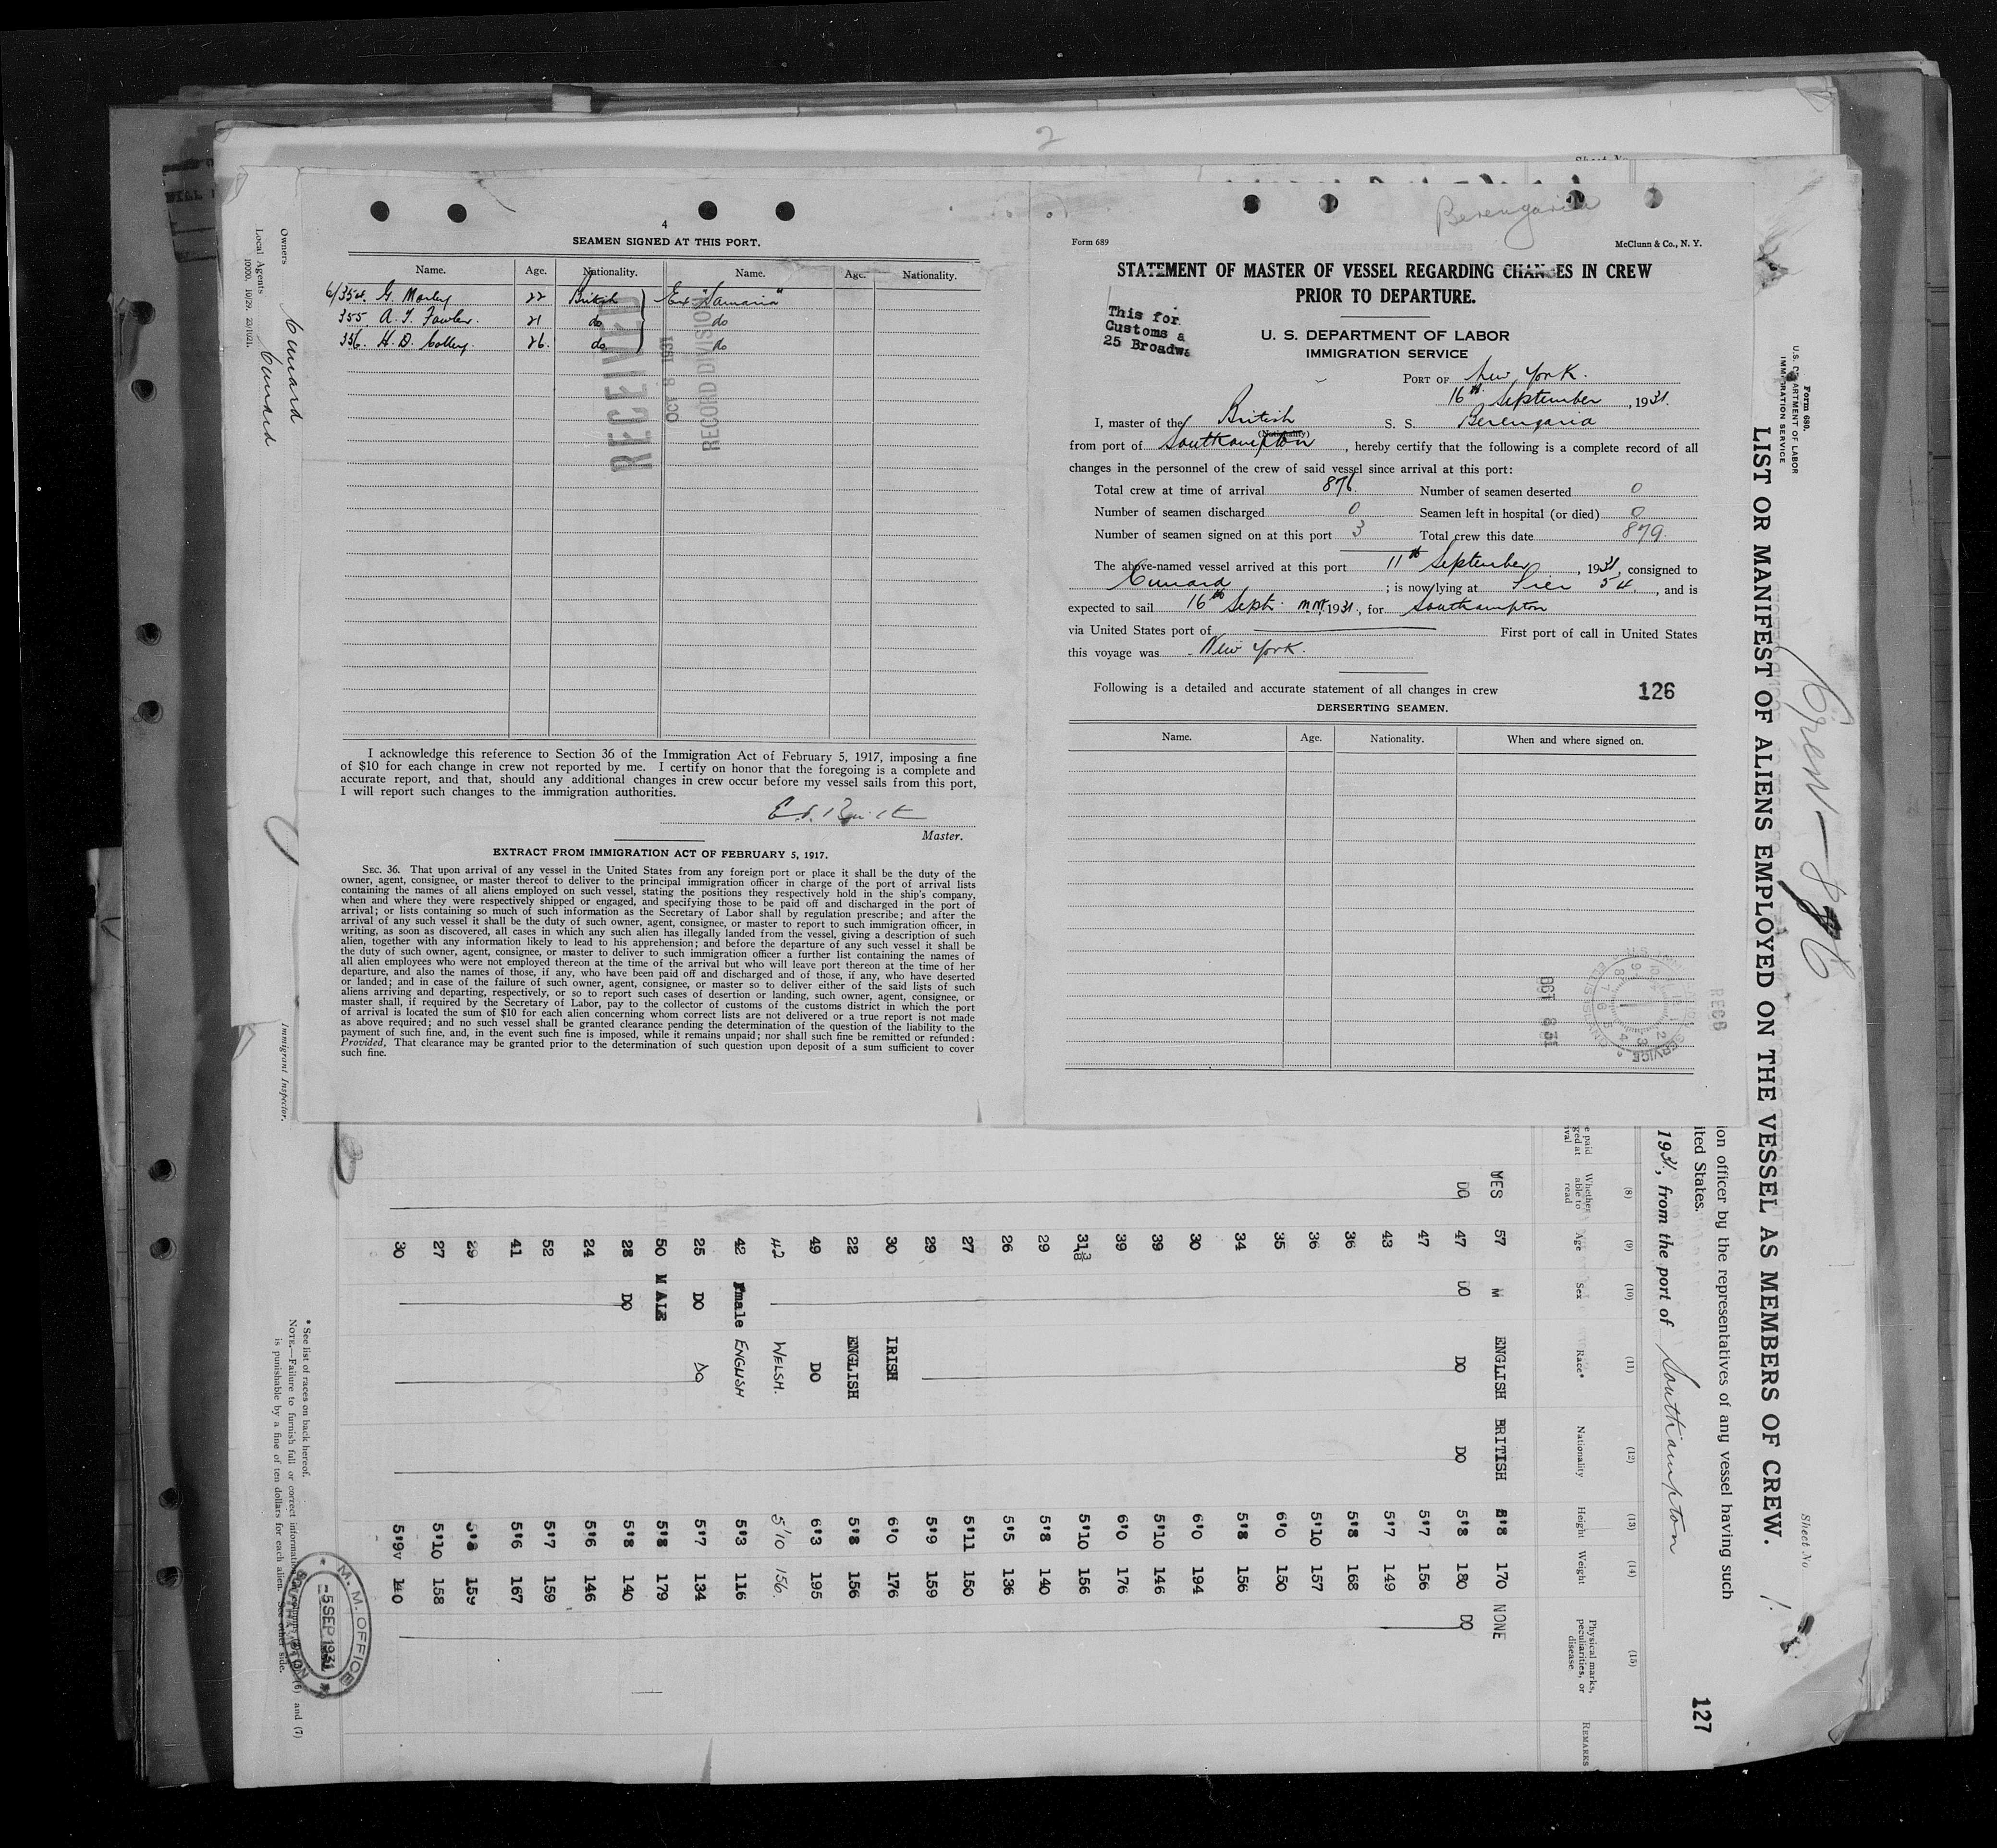 2
Berengaria
4
SEAMEN SIGNED AT THIS PORT.
Name. Age. Nationality. Name. Age. Nationality.
6/354. G. Morley 22 British Ex "Samaria"
355. A. J. Fowler. 21 do do
356. H. D. Colley. 26. do do
RECEIVED
OCT 8 1931
RECORD DIVISION
I acknowledge this reference to Section 36 of the Immigration Act of February 5, 1917, imposing a fine
of $10 for each change in crew not reported by me. I certify on honor that the foregoing is a complete and
accurate report, and that, should any additional changes in crew occur before my vessel sails from this port,
I will report such changes to the immigration authorities.
Master.
EXTRACT FROM IMMIGRATION ACT OF FEBRUARY 5, 1917.
SEC. 36. That upon arrival of any vessel in the United States from any foreign port or place it shall be the duty of the
owner, agent, consignee, or master thereof to deliver to the principal immigration officer in charge of the port of arrival lists
containing the names of all aliens employed on such vessel, stating the positions they respectively hold in the ship's company,
when and where they were respectively shipped or engaged, and specifying those to be paid off and discharged in the port of
arrival; or lists containing so much of such information as the Secretary of Labor shall by regulation prescribe; and after the
arrival of any such vessel it shall be the duty of such owner, agent, consignee, or master to report to such immigration officer, in
writing, as soon as discovered, all cases in which any such alien has illegally landed from the vessel, giving a description of such
alien, together with any information likely to lead to his apprehension; and before the departure of any such vessel it shall be
the duty of such owner, agent, consignee, or master to deliver to such immigration officer a further list containing the names of
all alien employees who were not employed thereon at the time of the arrival but who will leave port thereon at the time of her
departure, and also the names of those, if any, who have been paid off and discharged and of those, if any, who have deserted
or landed; and in case of the failure of such owner, agent, consignee, or master so to deliver either of the said lists of such
aliens arriving and departing, respectively, or so to report such cases of desertion or landing, such owner, agent, consignee, or
master shall, if required by the Secretary of Labor, pay to the collector of customs of the customs district in which the port
of arrival is located the sum of $10 for each alien concerning whom correct lists are not delivered or a true report is not made
as above required; and no such vessel shall be granted clearance pending the determination of the question of the liability to the
payment of such fine, and, in the event such fine is imposed, while it remains unpaid; nor shall such fine be remitted or refunded:
Provided, That clearance may be granted prior to the determination of such question upon deposit of a sum sufficient to cover
such fine.
Form 689 McClunn & Co., N. Y.
STATEMENT OF MASTER OF VESSEL REGARDING CHANGES IN CREW
PRIOR TO DEPARTURE.
This for
Customs a
25 Broadwa
U. S. DEPARTMENT OF LABOR
IMMIGRATION SERVICE
PORT OF New York.
16th September, 1931.
I, master of the British S. S. Berengaria
(Nationality)
from port of Southampton, hereby certify that the following is a complete record of all
changes in the personnel of the crew of said vessel since arrival at this port:
Total crew at time of arrival 876. Number of seamen deserted 0
Number of seamen discharged 0 Seamen left in hospital (or died) 0
Number of seamen signed on at this port 3 Total crew this date 879.
The above-named vessel arrived at this port 11th September, 1931, consigned to
Cunard; is now lying at Pier 54., and is
expected to sail 16th Sept. 1931., for Southampton
via United States port of First port of call in United States
this voyage was New York.
Following is a detailed and accurate statement of all changes in crew 126
DERSERTING SEAMEN.
Name. Age. Nationality. When and where signed on.
OCT 8 31
RECD
SERVICE
Owners Cunard
Local Agents Cunard
10000. 10/29. 22/1021.
Immigrant Inspector.
Form 689.
U.S. DEPARTMENT OF LABOR
IMMIGRATION SERVICE
LIST OR MANIFEST OF ALIENS EMPLOYED ON THE VESSEL AS MEMBERS OF CREW.
Crew - 876
Sheet No 1.
ion officer by the representatives of any vessel having such
ited States.
1931, from the port of Southampton
127
(8) (9) (10) (11) (12) (13) (14) (15)
Whether able to read Age Sex Race* Nationality Height Weight Physical marks, peculiarities, or disease REMARKS
YES 57 M ENGLISH BRITISH 5'8 170 NONE
DO 47 DO DO DO 5'8 180 DO
47 5'7 156
43 5'7 149
36 5'8 168
36 5'10 157
35 6'0 150
34 5'8 156
30 6'0 194
39 5'10 146
39 6'0 176
31 5'10 156
29 5'8 140
26 5'5 136
27 5'11 150
29 5'9 159
30 IRISH 6'0 176
22 ENGLISH 5'8 156
49 DO 6'3 195
42 WELSH. 5'10 156.
42 Fmale ENGLISH 5'3 116
25 DO DO 5'7 134
50 MALE 5'8 179
28 DO 5'8 140
24 5'6 146
52 5'7 159
41 5'6 167
29 5'8 159
27 5'10 158
30 5'9 140
* See list of races on back hereof.
NOTE.—Failure to furnish full or correct information (6) and (7)
is punishable by a fine of ten dollars for each alien. See other side.
M. M. OFFICE
-5 SEP 1931
SOUTHAMPTON